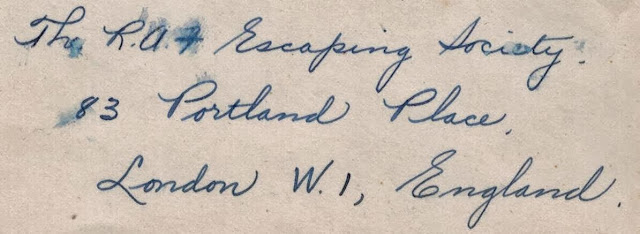 The R.A.F Escaping Society.
83 Portland Place,
London W.1, England.